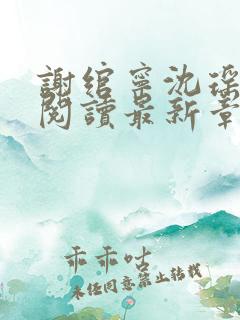 謝綰寧沈瑤
閱讀最新章
乖乖咕
未经同意禁止转载